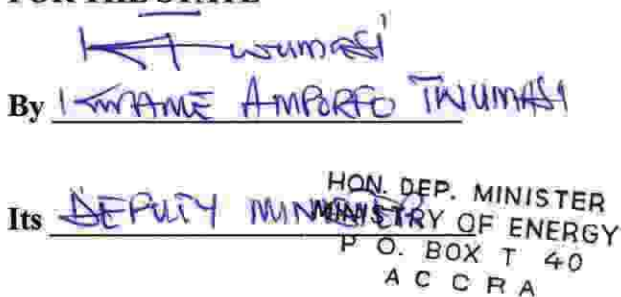 FOR THE STATE
KATwumasi
By KWAME AMPORFO TWUMASI
Its DEPUTY MINISTER
HON. DEP. MINISTER
MINISTRY OF ENERGY
P. O. BOX T 40
ACCRA